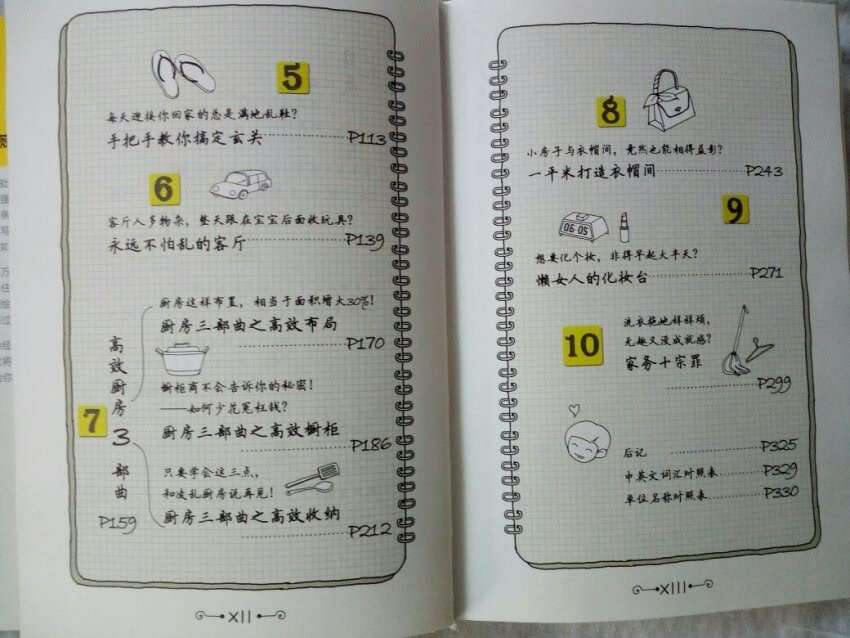 5
每天迎接你回家的总是满地乱鞋?
手把手教你搞定玄关 P113
6
客厅人多物杂，整天跟在宝宝后面收玩具?
永远不怕乱的客厅 P139
7
高效厨房3部曲
P159
厨房这样布置，相当于面积增大30%!
厨房三部曲之高效布局
P170
橱柜商不会告诉你的秘密!
——如何少花冤枉钱?
厨房三部曲之高效橱柜
P186
只要学会这三点，
和凌乱厨房说再见!
厨房三部曲之高效收纳
P212
XII
8
小房子与衣帽间，竟然也能相得益彰?
一平米打造衣帽间 P243
9
06:05
想要化个妆，非得早起大半天?
懒女人的化妆台 P271
10
洗衣拖地样样烦，
无趣又没成就感?
家务十宗罪
P299
后记 P325
中英文词汇对照表 P329
单位名称对照表 P330
XIII